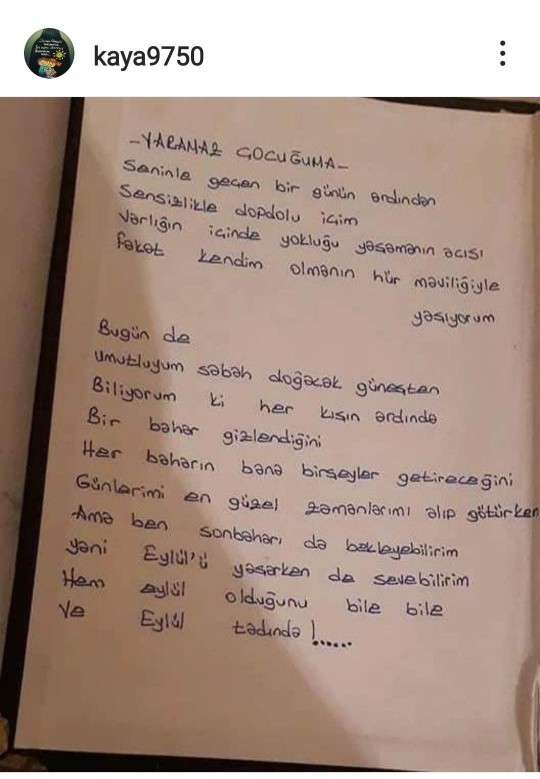 kaya9750
-YARAMAZ ÇOCUĞUMA-
Seninle geçen bir günün ardından
Sensizlikle dopdolu içim
Varlığın içinde yokluğu yaşamanın acısı
fakat kendim olmanın hür maviliğiyle
yaşıyorum
Bugün de
umutluyum sabah doğacak güneşten
Biliyorum ki her kışın ardında
Bir bahar gizlendiğini
Her baharın bana birşeyler getireceğini
Günlerimi en güzel zamanlarımı alıp götürken
Ama ben sonbaharı da bekleyebilirim
yani Eylül'ü yaşarken de sevebilirim
Hem eylül olduğunu bile bile
Ve Eylül tadında!......